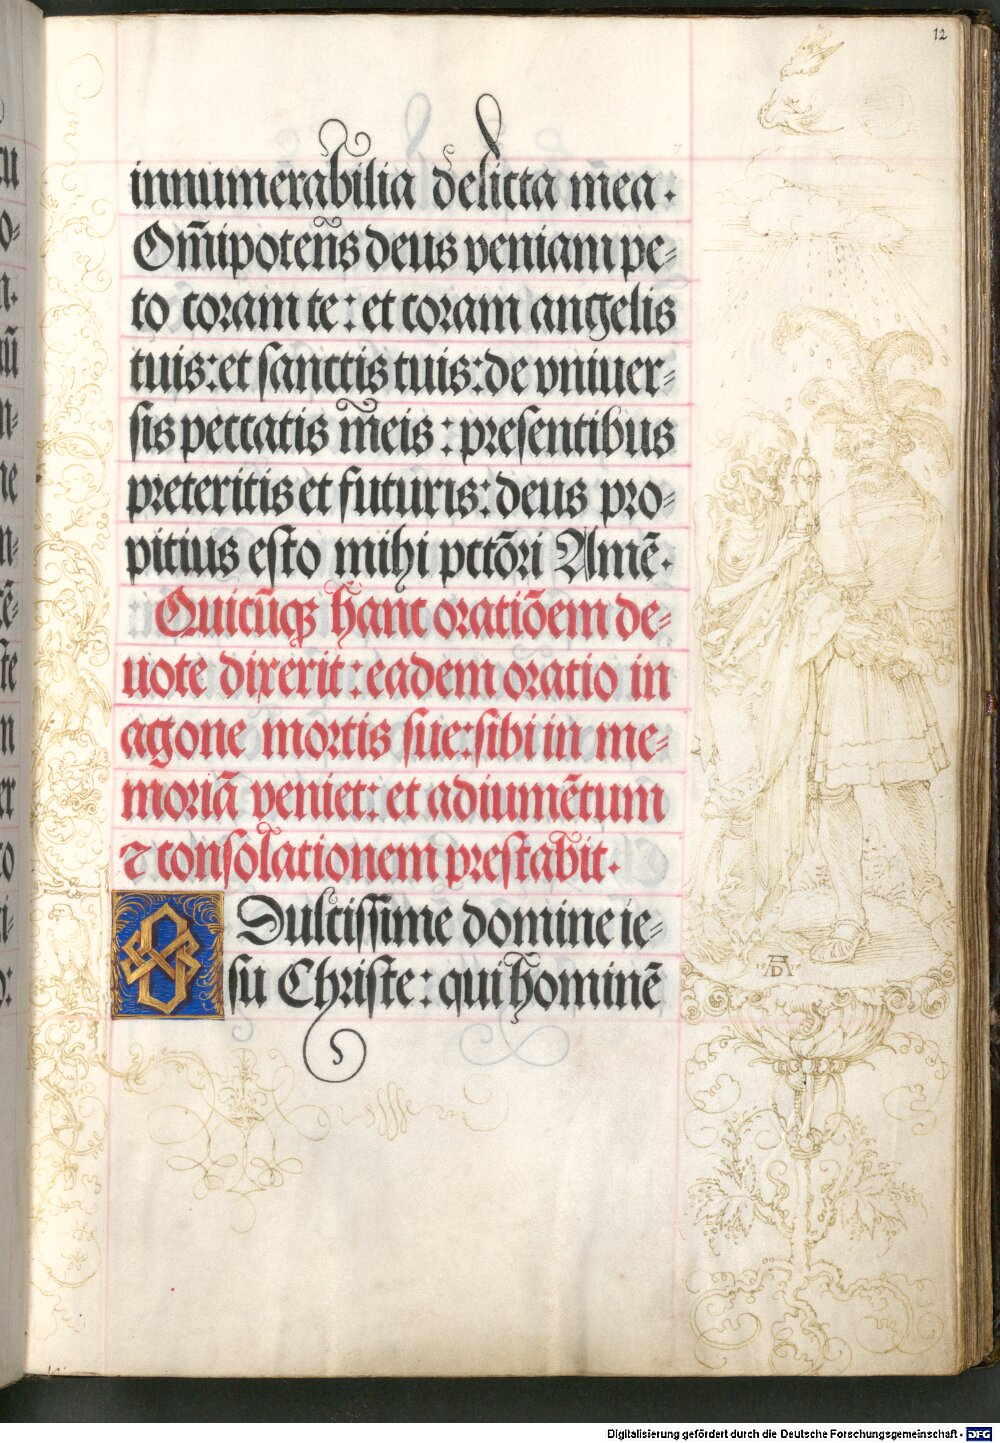 12
innumerabilia delicta mea.
Om̄ipotens deus veniam pe=
to coram te: et coram angelis
tuis: et sanctis tuis: de vniuer=
sis peccatis meis: presentibus
preteritis et futuris: deus pro=
pitius esto mihi pctōri Amē.
Quicūqꝫ hanc oratiōem de=
uote dixerit: eadem oratio in
agone mortis sue: sibi in me=
moriā veniet: et adiumētum
⁊ consolationem prestabit.
Dulcissime domine ie=
su Christe: qui hominē
AD
Digitalisierung gefördert durch die Deutsche Forschungsgemeinschaft - DFG